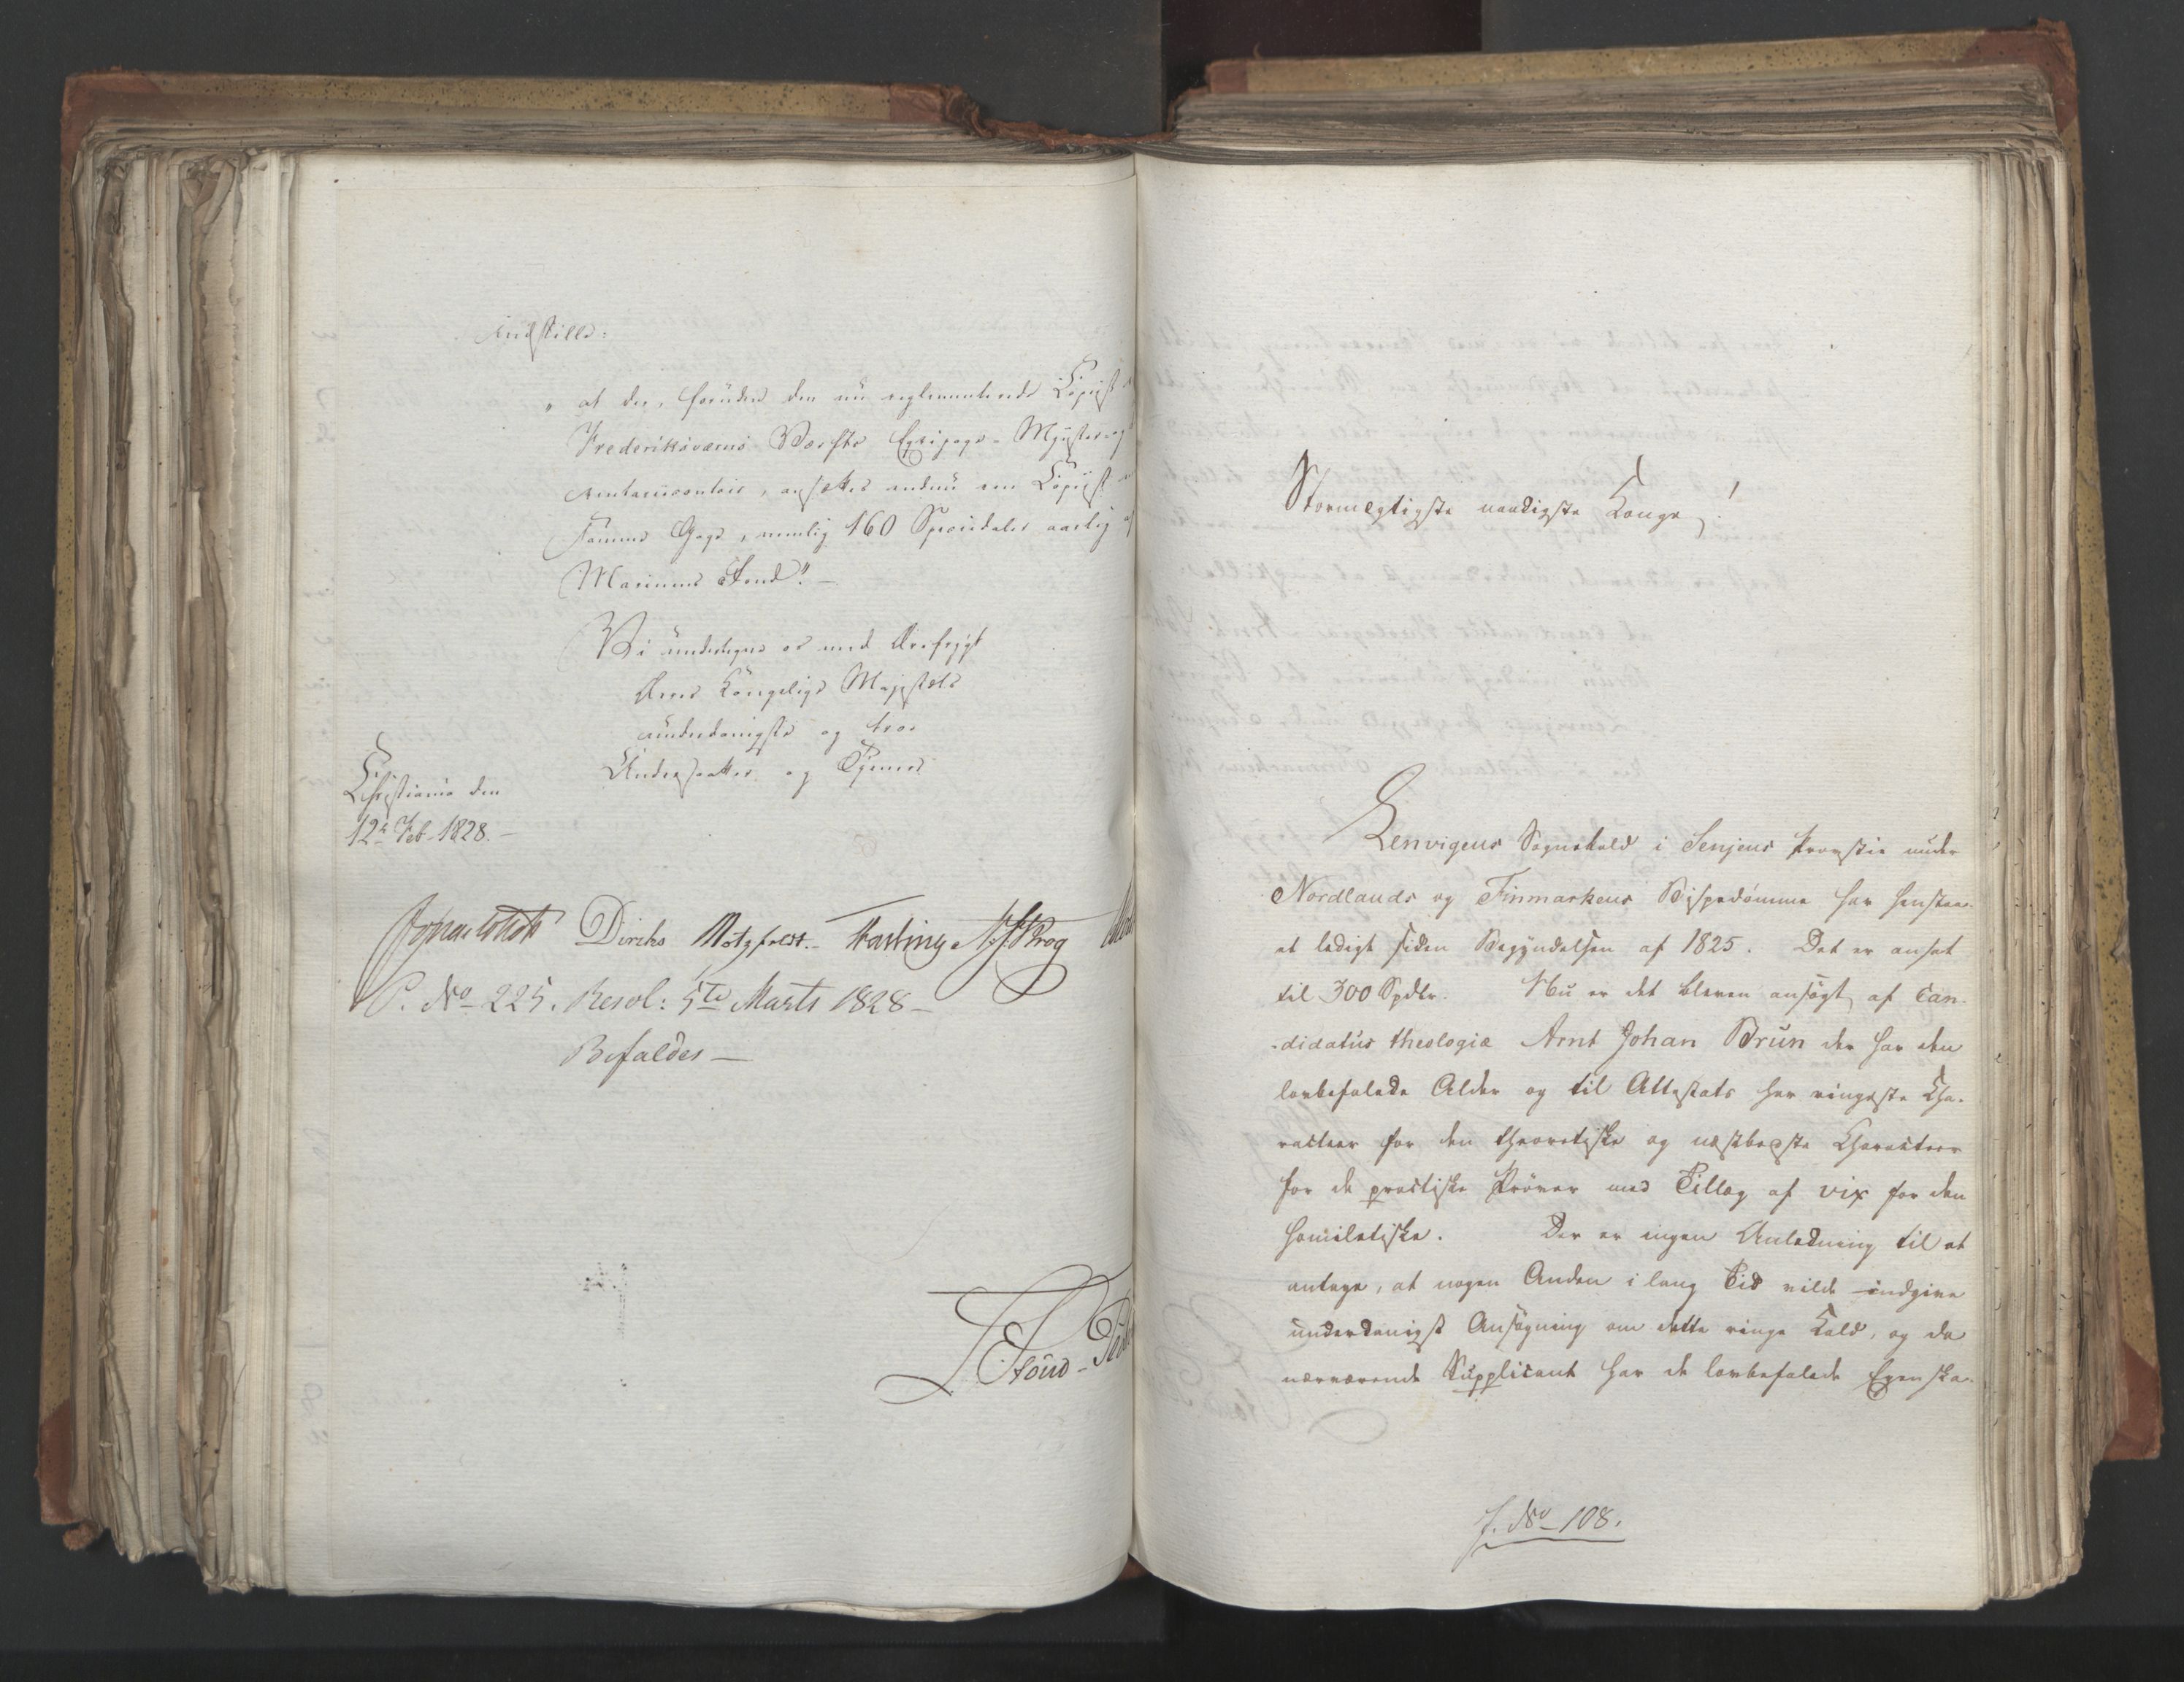 indstille:
" at der, foruden den nu reglementerede Copiist
Frederiksværns Værfts Equipage- Mynster og
Armaturcontoir, ansættes endnu een Copiist
samme Gage, nemlig 160 Speciedaler aarlig af
Marinens Fond". -
Vi undertegne os med Ærefrygt
Deres Kongelige Majestæts
underdanigste og troe
Undersaatter og Tjenere
Christiania den
12te Feb. 1828. -
Collett Diriks Motzfeldt. - Fasting Krog
P. No 225. Resol: 5te Marts 1828 -
Bifaldes -
Stormægtigste naadigste Konge!
Lenvigens Sognekald i Senjens Provstie under
Nordlands og Finmarkens Bispedømme har henstaa-
et ledigt siden Begyndelsen af 1825. Det er ansat
til 300 Spdlr. Nu er det bleven ansøgt af Can-
-didatus theologiæ Arnt Johan Brun der har den
lovbefalede Alder og til Attestats har ringeste Cha-
racteer for den theoretiske og næstbedste Charakteer
for de practiske Prøver med Tillæg af vix for den
homiletiske. Der er ingen Anledning til at
antage, at nogen Anden i lang Tid vilde indgive
underdanigst Ansøgning om dette ringe Kald, og da
nærværende Supplicant har de lovbefalede Egenska-
J. No - 108.